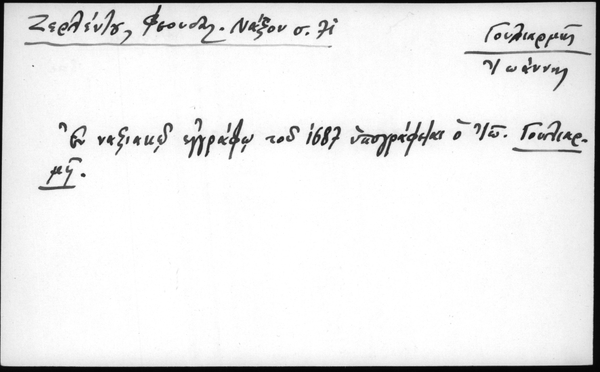 Ζερλέντου, Φεουδαλ. Νάξου σ. 71
Γουλιαρμῆς
Ἰωάννης
Ἐν ναξιακῷ ἐγγράφῳ τοῦ 1687 ὑπογράφεται ὁ Ἰω. Γουλιαρ-
μῆς.